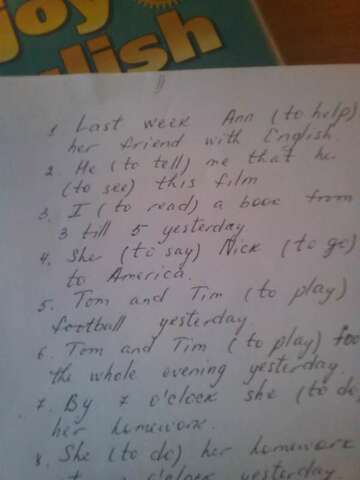 joy
English
1. Last week Ann (to help)
her friend with English
2. He (to tell) me that he
(to see) this film
3. I (to read) a book from
3 till 5 yesterday.
4. She (to say) Nick (to go)
to America.
5. Tom and Tim (to play)
football yesterday.
6. Tom and Tim (to play) foo
the whole evening yesterday.
7. By 7 o'clock she (to do
her homework.
8. She (to do) her homework
o'clock yesterday.